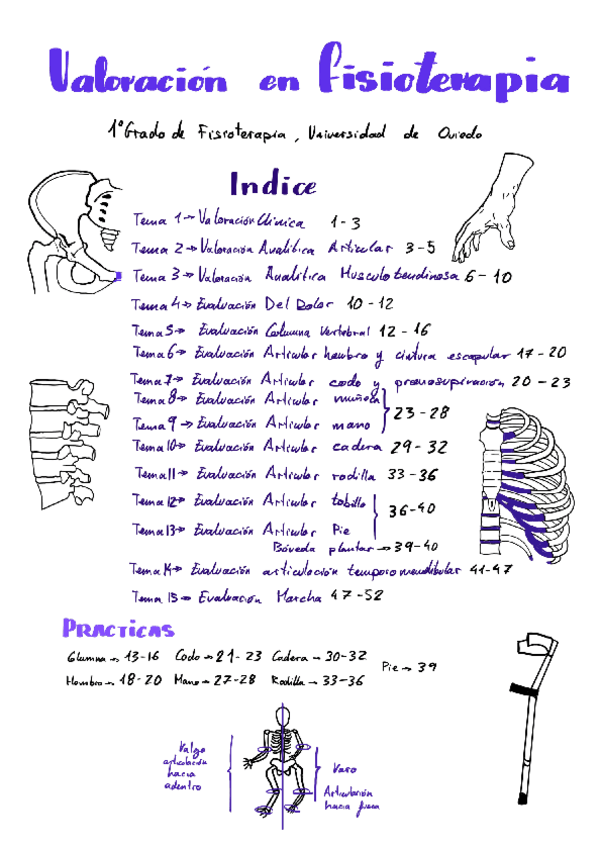 Valoración en fisioterapia
1º Grado de Fisioterapia, Universidad de Oviedo
Indice
Tema 1→ Valoración Clínica 1-3
Tema 2→ Valoración Analítica Articular 3-5
Tema 3→ Valoración Analítica Musculotendinosa 6-10
Tema 4→ Evaluación Del Dolor 10-12
Tema 5→ Evaluación Columna Vertebral 12-16
Tema 6→ Evaluación Articular hombro y cintura escapular 17-20
Tema 7→ Evaluación Articular codo y pronosupinación 20-23
Tema 8→ Evaluación Articular muñeca
Tema 9→ Evaluación Articular mano
23-28
Tema 10→ Evaluación Articular cadera 29-32
Tema 11→ Evaluación Articular rodilla 33-36
Tema 12→ Evaluación Articular tobillo
36-40
Tema 13→ Evaluación Articular Pie
Bóveda plantar → 39-40
Tema 14→ Evaluación articulación temporomandibular 41-47
Tema 15→ Evaluación Marcha 47-52
PRACTICAS
Columna → 13-16 Codo → 21-23 Cadera → 30-32
Pie → 39
Hombro → 18-20 Mano → 27-28 Rodilla → 33-36
Valgo
articulación
hacia
adentro
Varo
Articulación
hacia fuera